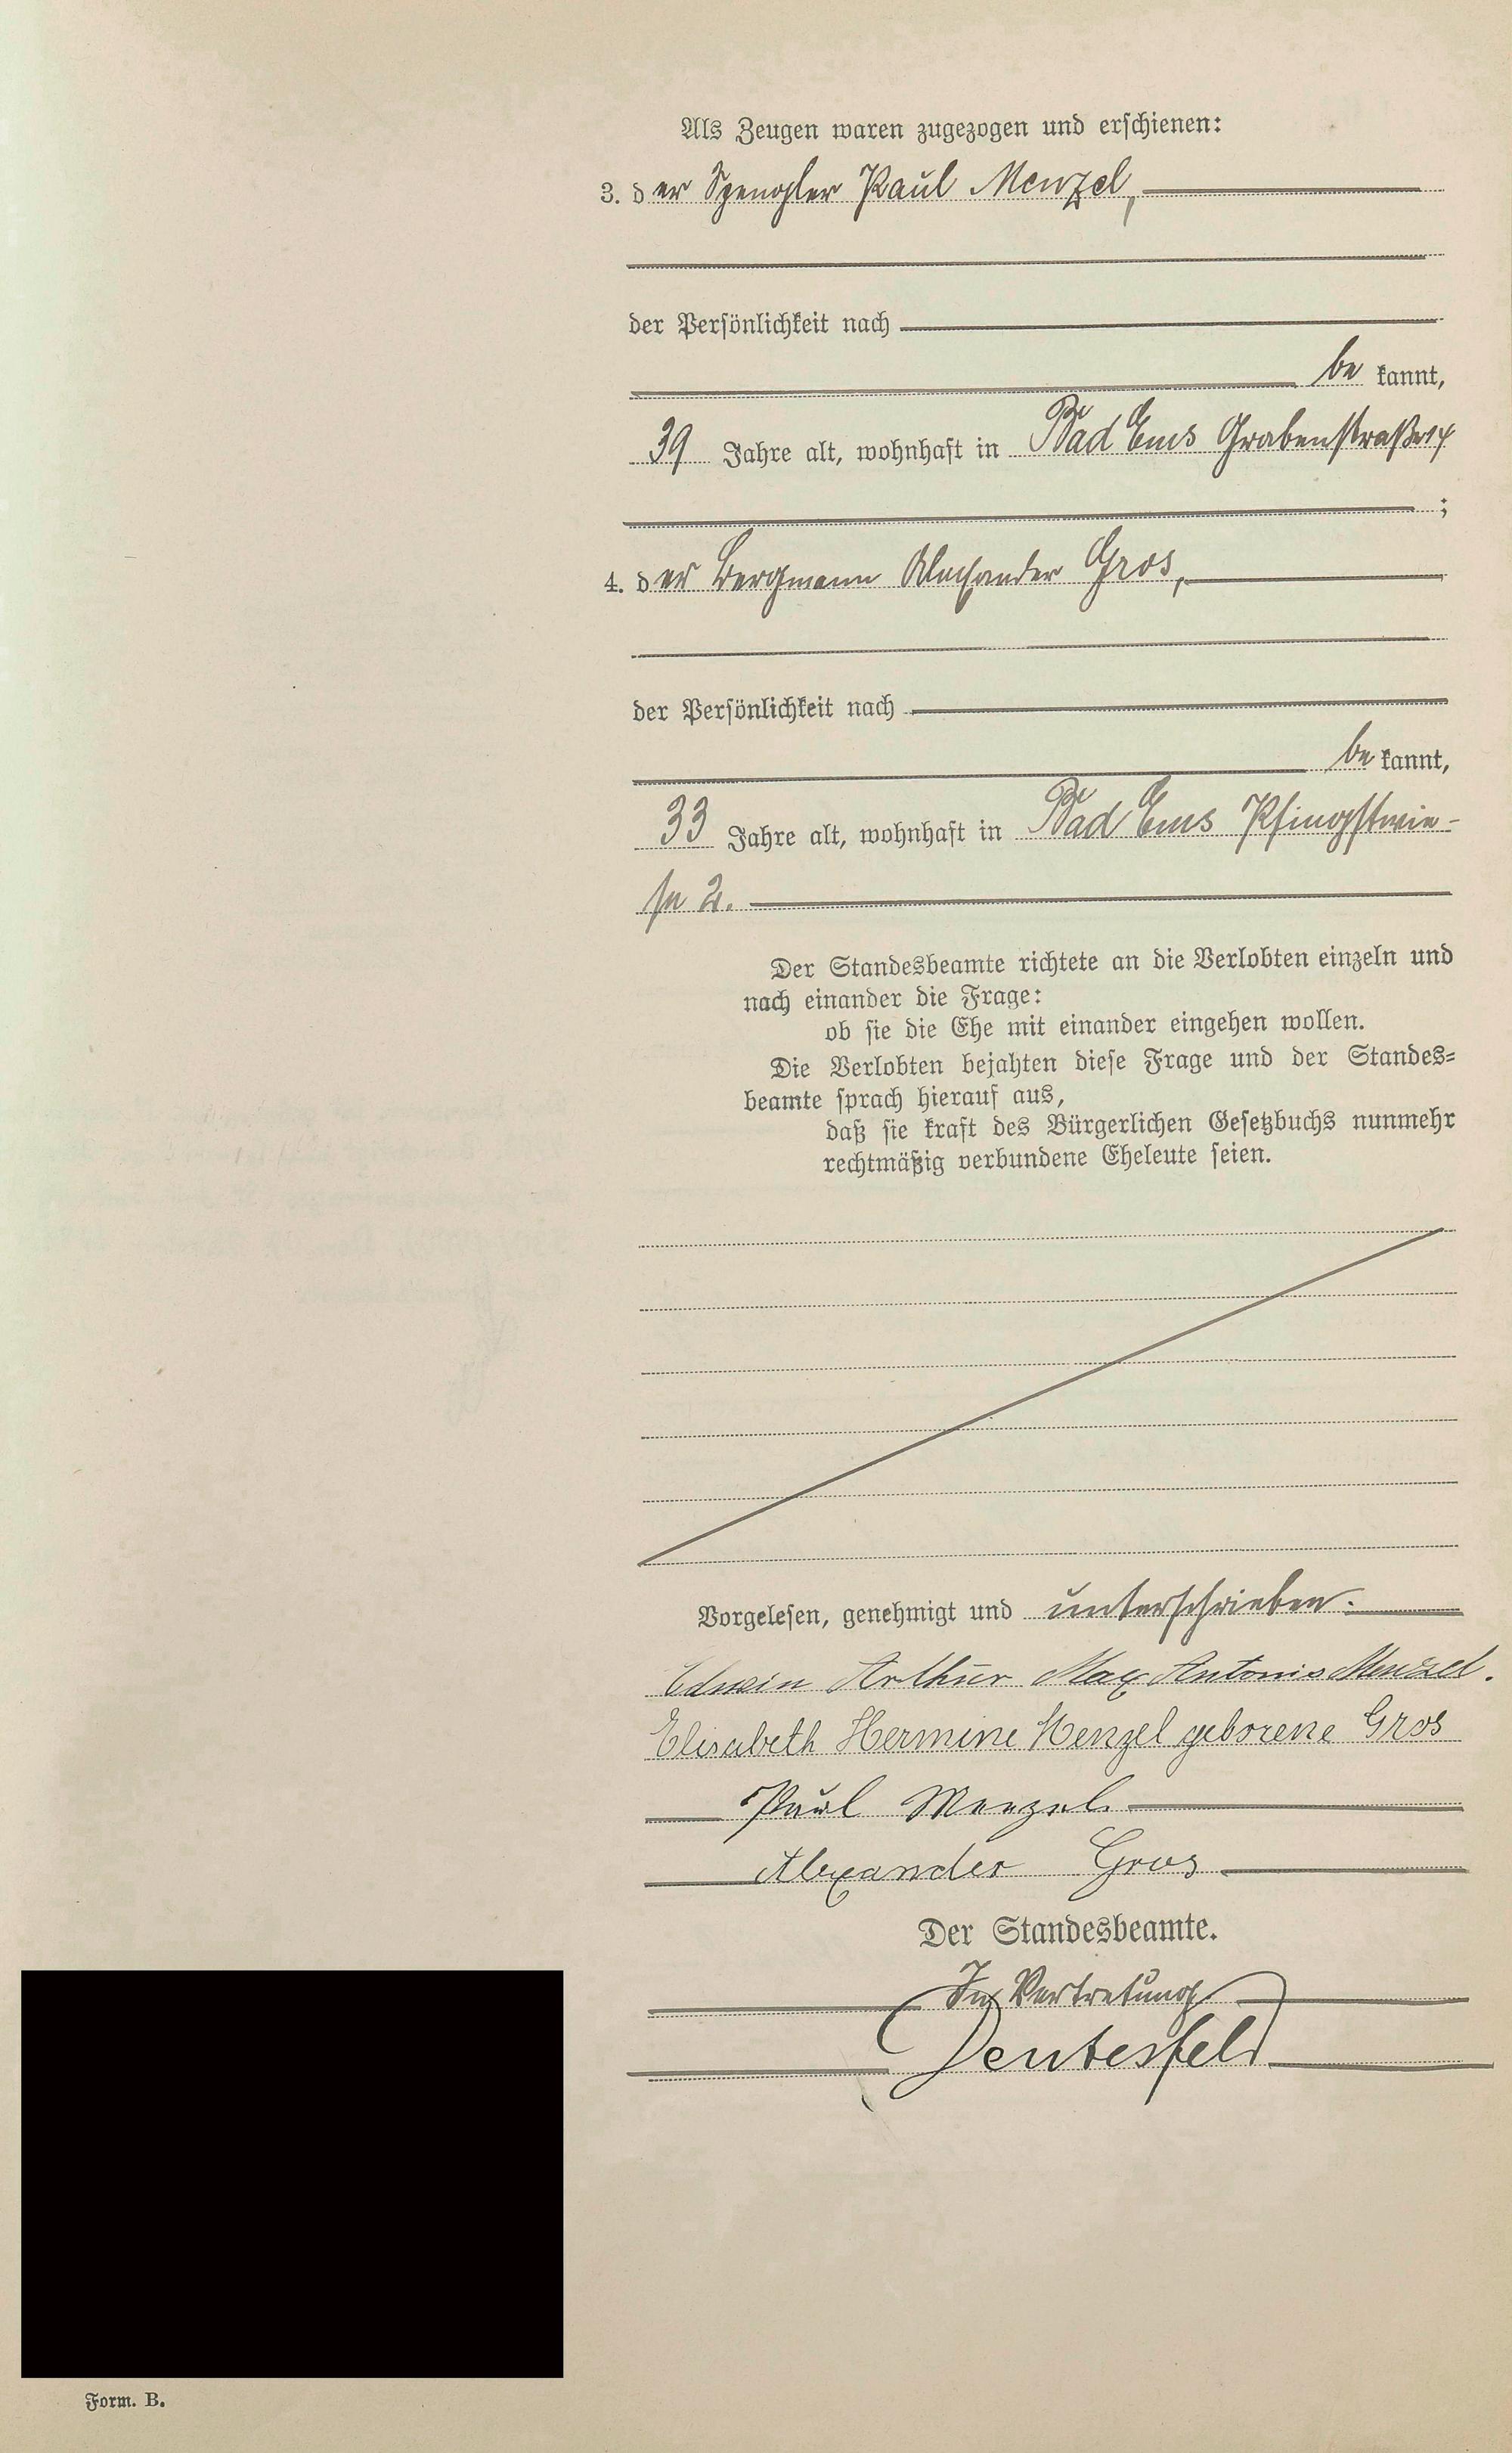 Als Zeugen waren zugezogen und erschienen:
3. der Spengler Paul Menzel,
der Persönlichkeit nach
bekannt,
39 Jahre alt, wohnhaft in Bad Ems Grabenstraße
;
4. der Bergmann Alexander Gros,
der Persönlichkeit nach
bekannt,
33 Jahre alt, wohnhaft in Bad Ems Pfingstwie-
se 2.
Der Standesbeamte richtete an die Verlobten einzeln und
nach einander die Frage:
ob sie die Ehe mit einander eingehen wollen.
Die Verlobten bejahten diese Frage und der Standes-
beamte sprach hierauf aus,
daß sie kraft des Bürgerlichen Gesetzbuchs nunmehr
rechtmäßig verbundene Eheleute seien.
Vorgelesen, genehmigt und unterschrieben.
Edwin Arthur Max Antonio Menzel.
Elisabeth Hermine Menzel geborene Gros
Paul Menzel
Alexander Gros
Der Standesbeamte.
In Vertretung
Form. B.